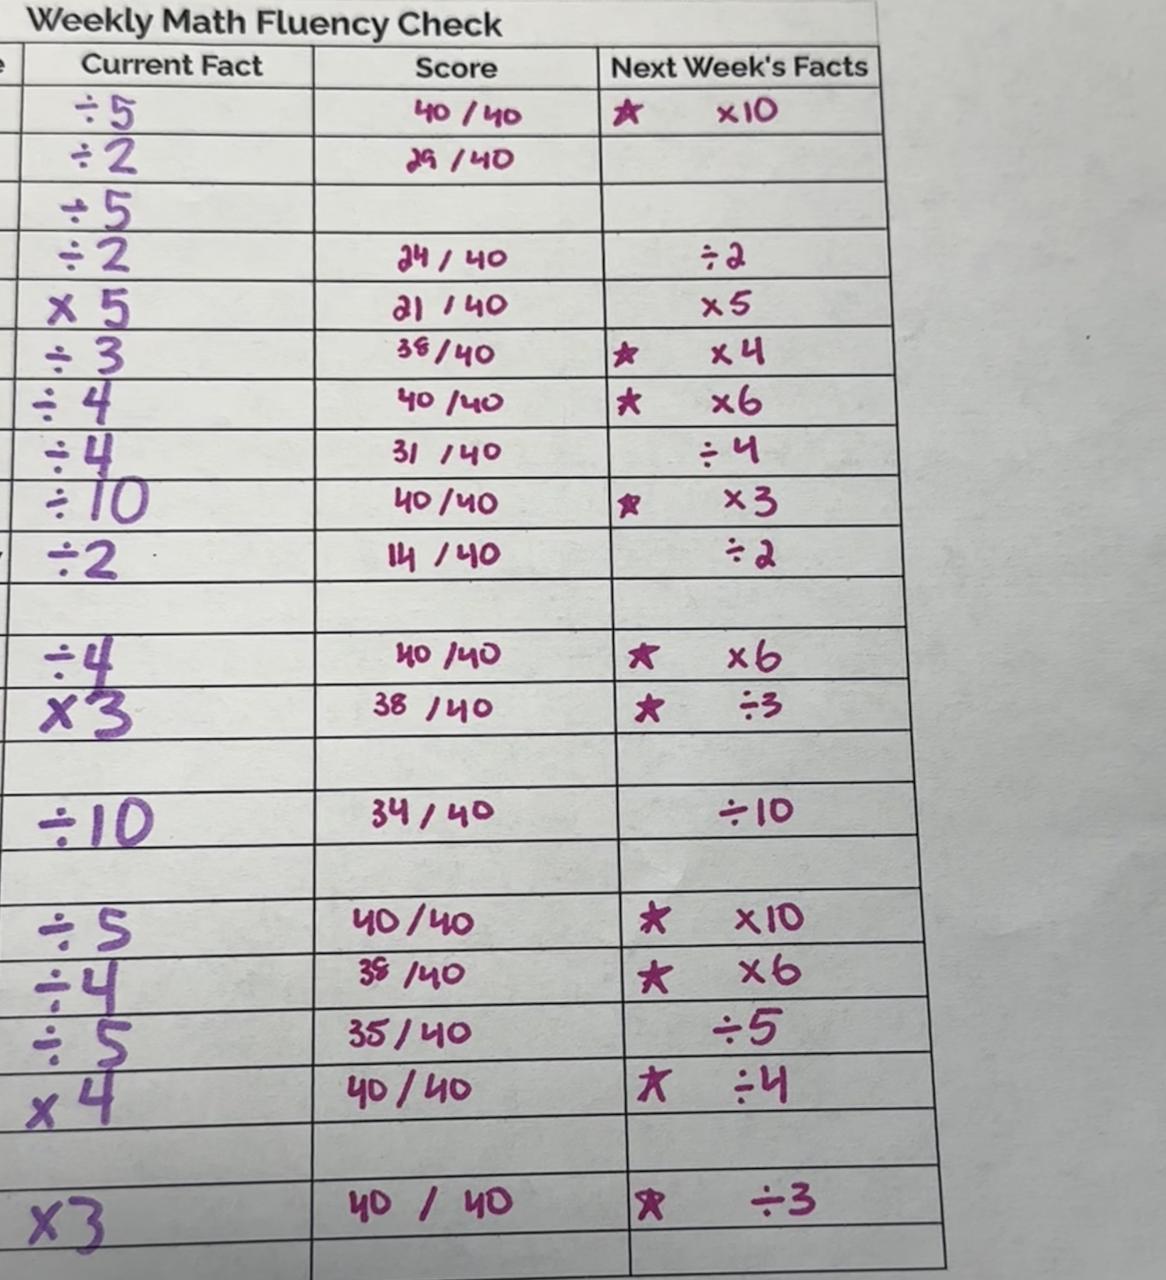 Weekly Math Fluency Check
Current Fact Score Next Week's Facts
÷5 40/40 ★ ×10
÷2 29/40
÷5
÷2 24/40 ÷2
×5 21/40 ×5
÷3 38/40 ★ ×4
÷4 40/40 ★ ×6
÷4 31/40 ÷4
÷10 40/40 ★ ×3
÷2 14/40 ÷2
÷4 40/40 ★ ×6
×3 38/40 ★ ÷3
÷10 34/40 ÷10
÷5 40/40 ★ ×10
÷4 38/40 ★ ×6
÷5 35/40 ÷5
×4 40/40 ★ ÷4
×3 40/40 ★ ÷3